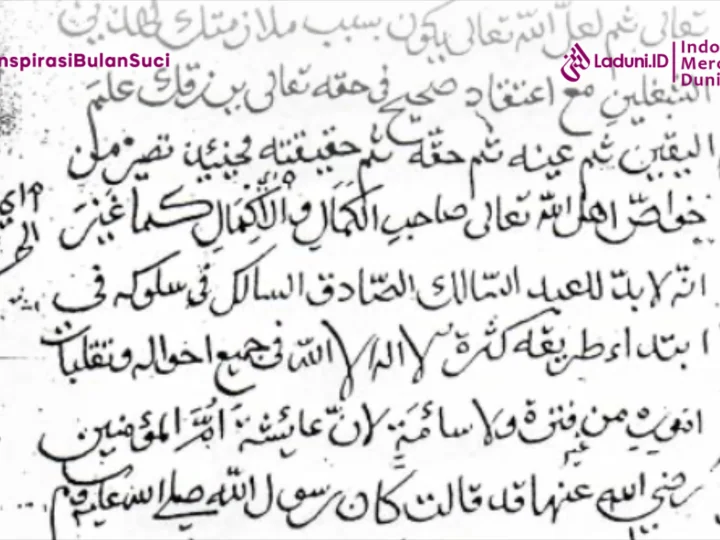 تعالى ثم لعل الله تعالى يكون بسبب ملازمتك
nspirasiBulanSuci
Laduni.ID
Indo
Merg
Duni
مع اعتقاد صحيح في حقه تعالى يرزقك علم
اليقين ثم عينه ثم حقه ثم حقيقته فحينئذ تصير من
خواص اهل الله تعالى صاحب الكمال والاكمال كما
انه لا بد للعبد السالك الصادق السالك في سلوكه في
ابتداء طريقه كثرة لا اله الا الله في جميع احواله وتقلبات
اموره من فترة ولا سائمة لان عائشة ام المؤمنين
غير
رضي الله عنها قد قالت كان رسول الله صلى الله عليه وم